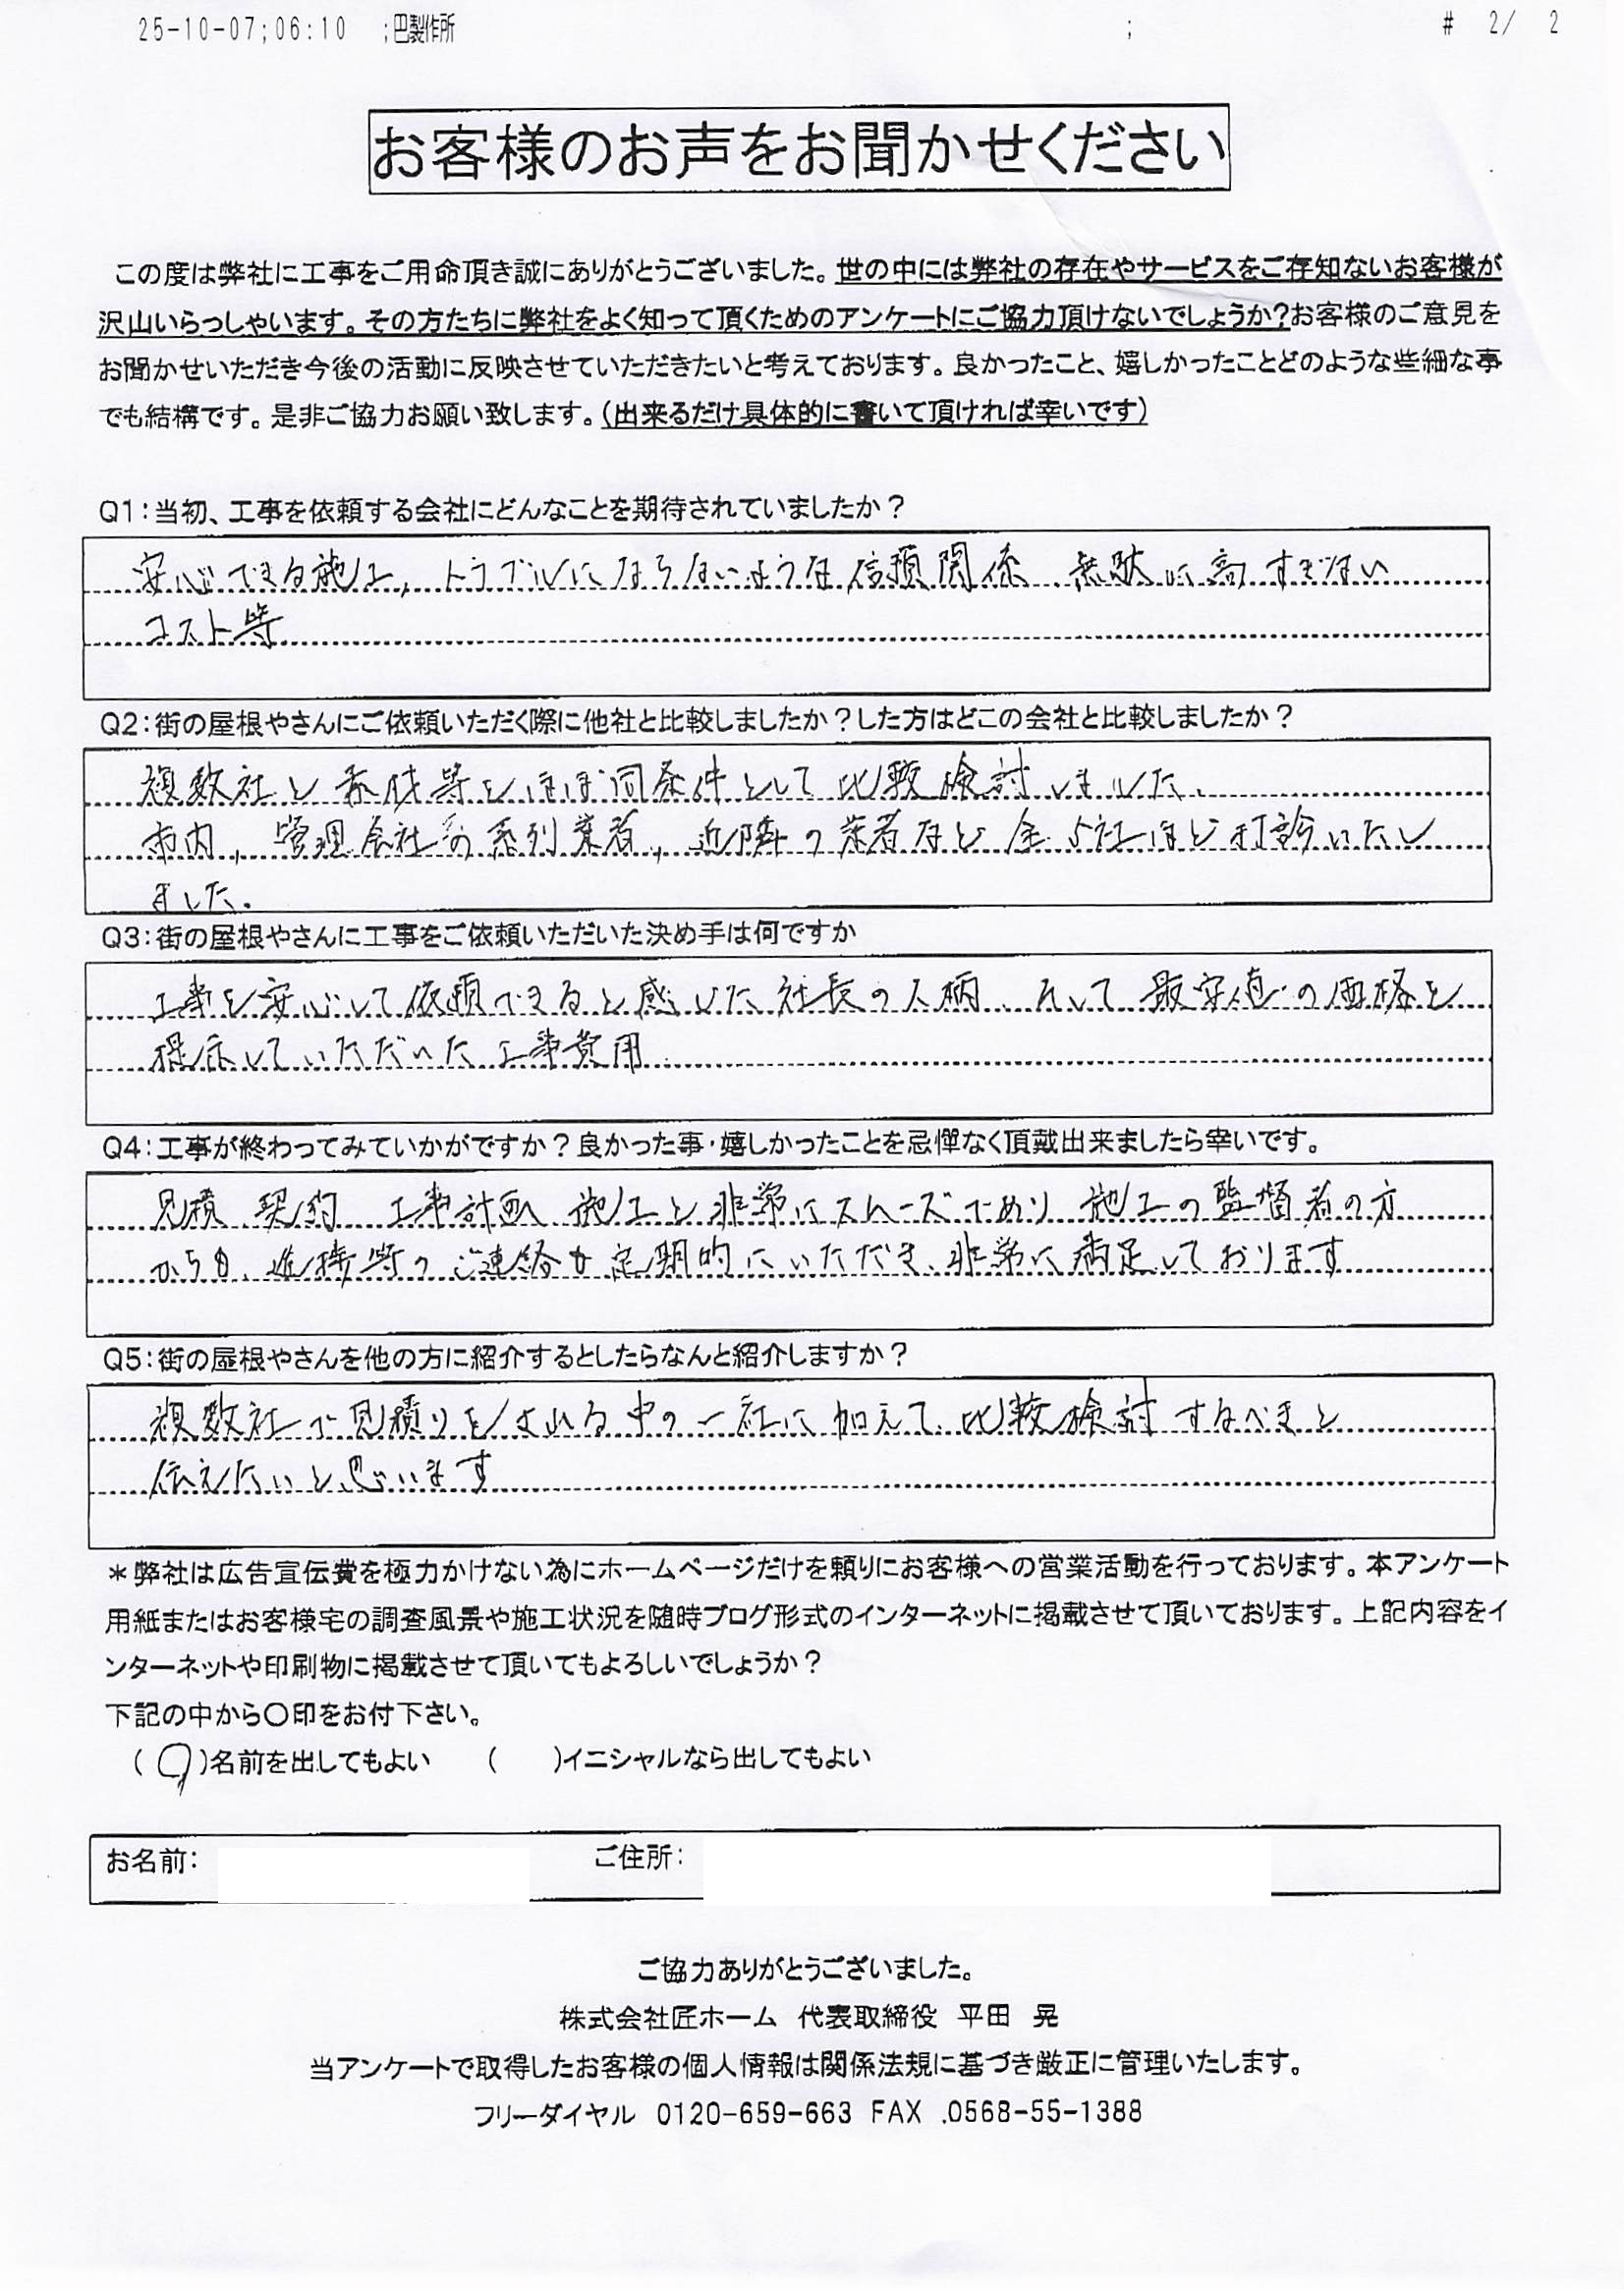 25-10-07;06:10 ;巴製作所 ; # 2/ 2
お客様のお声をお聞かせください
この度は弊社に工事をご用命頂き誠にありがとうございました。世の中には弊社の存在やサービスをご存知ないお客様が
沢山いらっしゃいます。その方たちに弊社をよく知って頂くためのアンケートにご協力頂けないでしょうか?お客様のご意見を
お聞かせいただき今後の活動に反映させていただきたいと考えております。良かったこと、嬉しかったことどのような些細な事
でも結構です。是非ご協力お願い致します。(出来るだけ具体的に書いて頂ければ幸いです)
Q1:当初、工事を依頼する会社にどんなことを期待されていましたか?
安心できる施工, トラブルにならないような信頼関係、無駄に高すぎない
コスト等
Q2:街の屋根やさんにご依頼いただく際に他社と比較しましたか?した方はどこの会社と比較しましたか?
複数社と素材等をほぼ同条件として比較検討しました、
市内, 管理会社の系列業者, 近隣の業者など全5社ほど打診いたし
ました。
Q3:街の屋根やさんに工事をご依頼いただいた決め手は何ですか
工事を安心して依頼できると感じた社長の人柄、そして最安値の価格を
提示していただいた工事費用
Q4:工事が終わってみていかがですか?良かった事・嬉しかったことを忌憚なく頂戴出来ましたら幸いです。
見積 契約 工事計画 施工と非常にスムーズであり 施工の監督者の方
からも、進捗等のご連絡も定期的にいただき、非常に満足しております
Q5:街の屋根やさんを他の方に紹介するとしたらなんと紹介しますか?
複数社で見積りをされる中の一社に加えて、比較検討するべきと
伝えたいと思います
*弊社は広告宣伝費を極力かけない為にホームページだけを頼りにお客様への営業活動を行っております。本アンケート
用紙またはお客様宅の調査風景や施工状況を随時ブログ形式のインターネットに掲載させて頂いております。上記内容をイ
ンターネットや印刷物に掲載させて頂いてもよろしいでしょうか?
下記の中から〇印をお付下さい。
(〇)名前を出してもよい ( )イニシャルなら出してもよい
お名前: ご住所:
ご協力ありがとうございました。
株式会社匠ホーム 代表取締役 平田 晃
当アンケートで取得したお客様の個人情報は関係法規に基づき厳正に管理いたします。
フリーダイヤル 0120-659-663 FAX .0568-55-1388